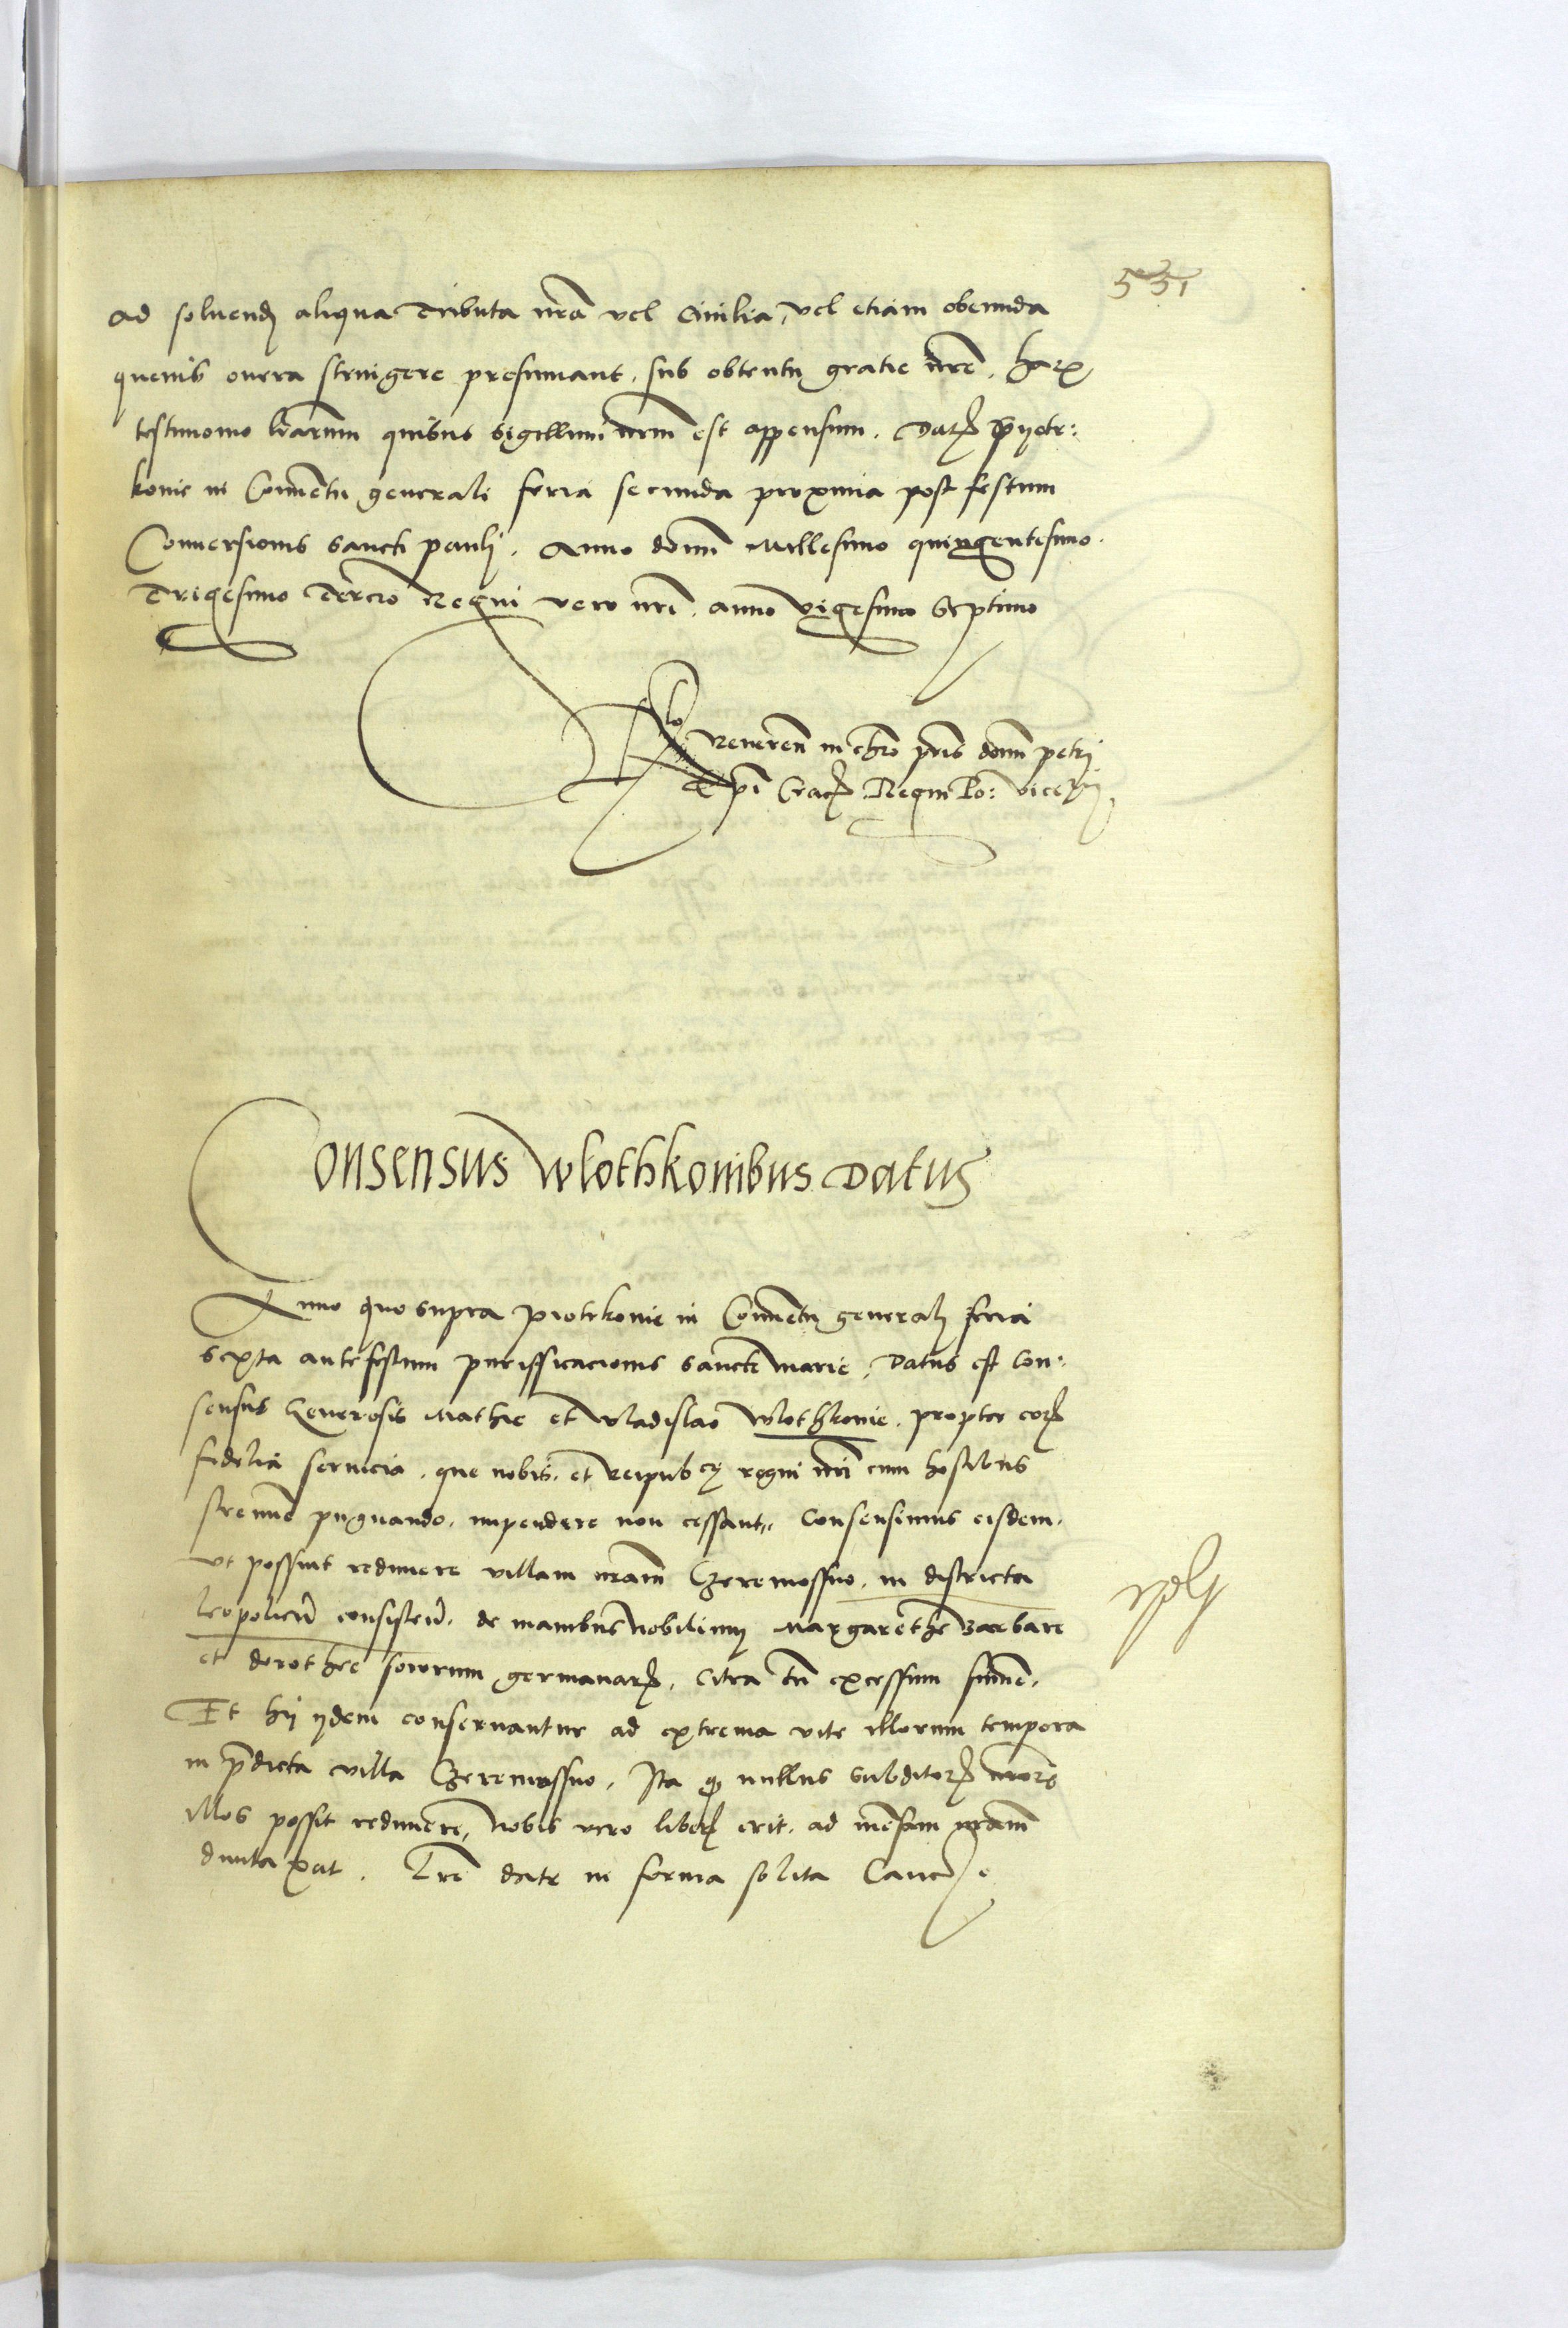 551
ad soluend aliqua Tributa nra vel Ciuilia, vel etiam obeunda
queuis onera stringere presumant. sub obtentu gratie nre. Harum
testimonio lrarum quibus sigillum nrm est appensum. Dat Pyotr:
konie in Conuentu generali feria secunda proxima post festum
Conuersionis sancti pauli. Anno domini Millesimo quingentesimo.
Trigesimo Tercio Regni vero nri. anno vigesimo Septimo
Rlo Reueren in chro pris domi petri
Epi Crac Regni Po: vice
Consensus Wlothkonibus Datus
Anno quo supra Piotrkonie in Conuentu generali feria
sexta ante festum purifficacionis sancte marie, Datus est Con:
sensus Generosis Mathie et Wladislao Wlothkonie. propter eor
fidelia seruicia. que nobis. et Reipub regni nri cum hostibus
strenue pugnando. impendere non cessant, Consensimus eisdem.
vt possint redimere villam nram Czeremossno. in districtu
leopolien consisten. de manibus Nobilium Margarethe Barbare
et dorothee sororum germanar, Citra tn excessum summe.
Et hij ijdem conseruantur ad extrema vite illorum tempora
in pdicta villa Czeremossno. Ita q nullus subditor nror
illos possit redimere, Nobis vero liber erit. ad mesam nram
duntaxat. Lre date in forma solita Canc